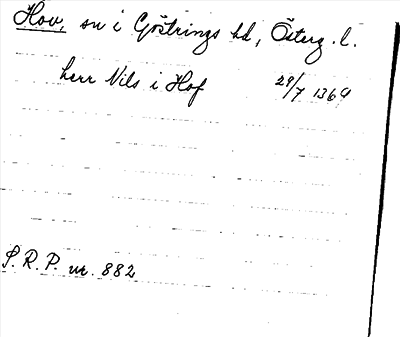 Hov, sn i Göstrings hd, Österg. l.
herr Nils i Hof 29/7 1369
S.R.P. nr. 882